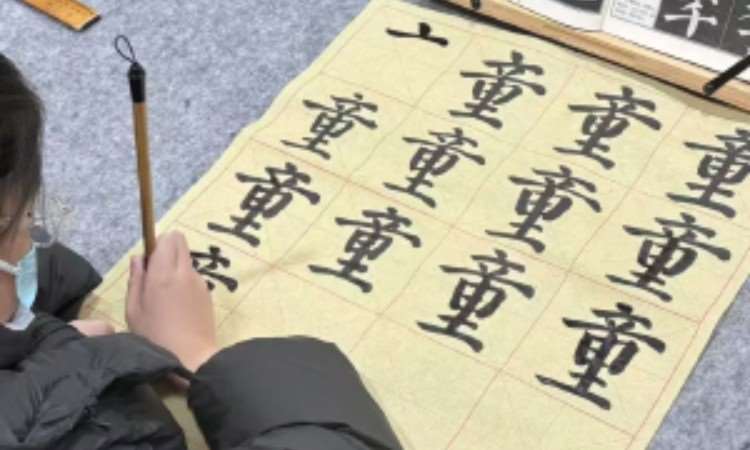 童 童 童
童 童 童 童
童 童 童 童